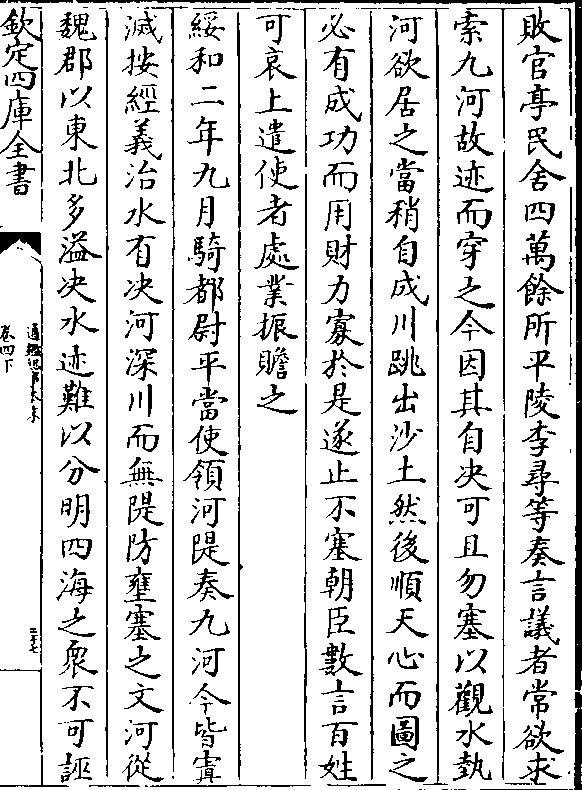 敗官亭民舍四萬餘所平陵李尋等奏言議者常欲求
索九河故迹而穿之今因其自决可且勿塞以觀水埶
河欲居之當稍自成川跳出沙土然後順天心而圖之
必有成功而用財力寡於是遂止不塞朝臣數言百姓
可哀上遣使者處業振贍之
綏和二年九月騎都尉平當使領河隄奏九河今皆寘
滅按經義治水有决河深川而無隄防壅塞之文河從
魏郡以東北多溢决水迹難以分明四海之衆不可誣
欽定四庫全書
通鑑紀事本末
卷四下
三十七